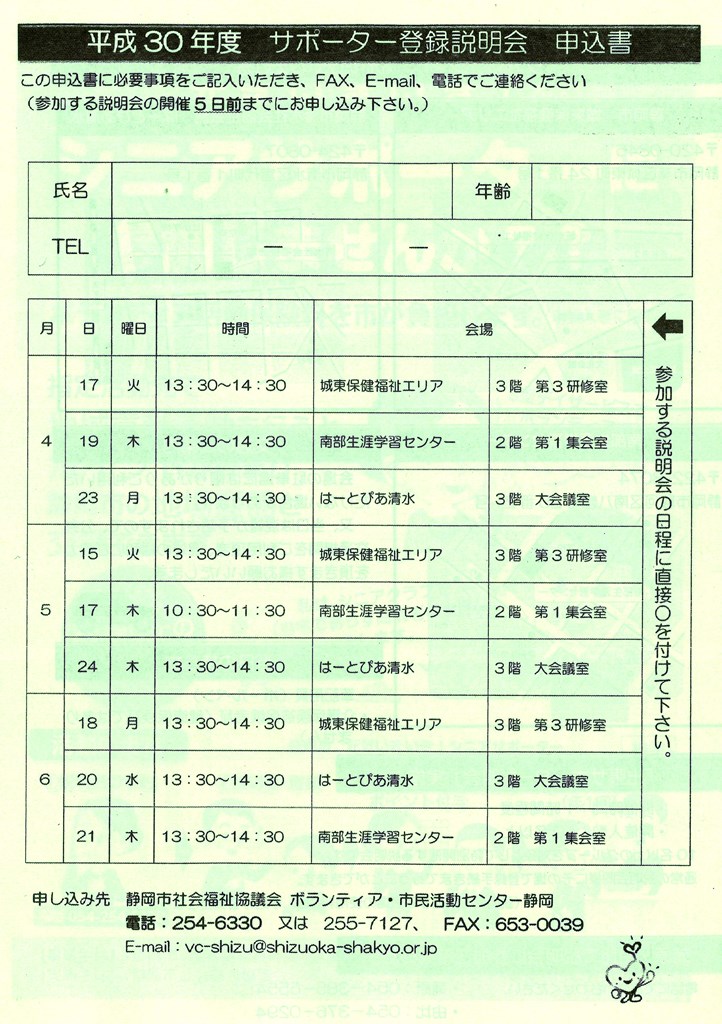 平成30年度　サポーター登録説明会　申込書
この申込書に必要事項をご記入いただき、FAX、E-mail、電話でご連絡ください
（参加する説明会の開催５日前までにお申し込み下さい。）
氏名　年齢
TEL　－　－
月　日　曜日　時間　会場
4　17　火　13：30～14：30　城東保健福祉エリア　3階　第3研修室
19　木　13：30～14：30　南部生涯学習センター　2階　第1集会室
23　月　13：30～14：30　はーとぴあ清水　3階　大会議室
5　15　火　13：30～14：30　城東保健福祉エリア　3階　第3研修室
17　木　10：30～11：30　南部生涯学習センター　2階　第1集会室
24　木　13：30～14：30　はーとぴあ清水　3階　大会議室
6　18　月　13：30～14：30　城東保健福祉エリア　3階　第3研修室
20　水　13：30～14：30　はーとぴあ清水　3階　大会議室
21　木　13：30～14：30　南部生涯学習センター　2階　第1集会室
←参加する説明会の日程に直接〇を付けて下さい。
申し込み先　静岡市社会福祉協議会 ボランティア・市民活動センター静岡
電話：254-6330　又は　255-7127、　FAX：653-0039
E-mail：vc-shizu@shizuoka-shakyo.or.jp